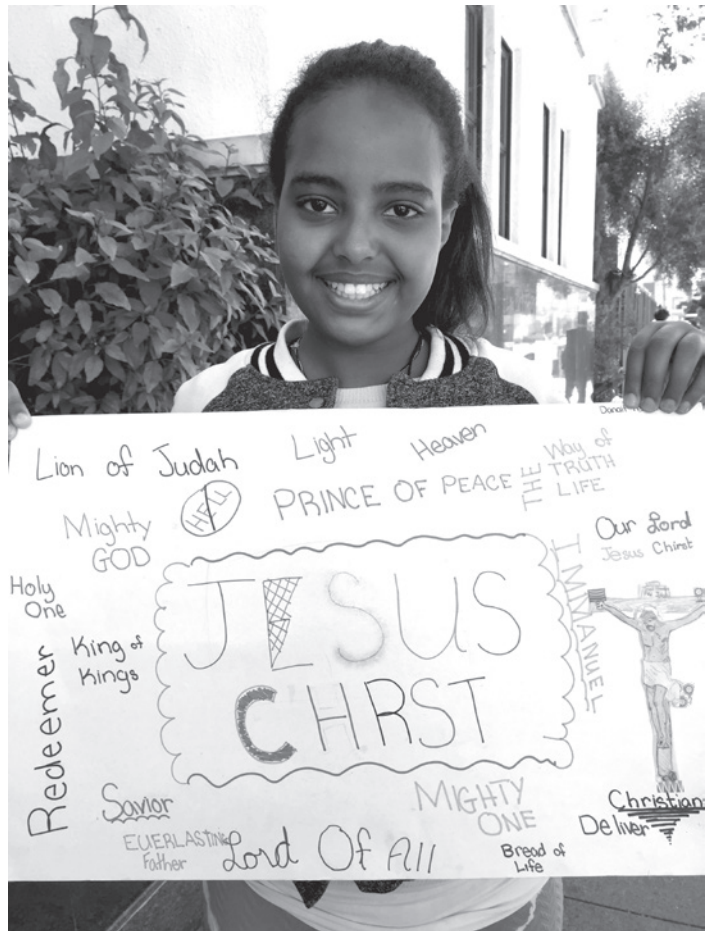 Lion of Judah
Light
Heaven
THE
Way of
TRUTH
LIFE
HELL
PRINCE OF PEACE
Mighty
GOD
Our Lord
Jesus Chirst
Holy
One
JESUS
CHRST
IMMANUEL
King of
Kings
Redeemer
Savior
EVERLASTING
Father
Lord Of All
MIGHTY
ONE
Bread of
Life
Christian
Deliver